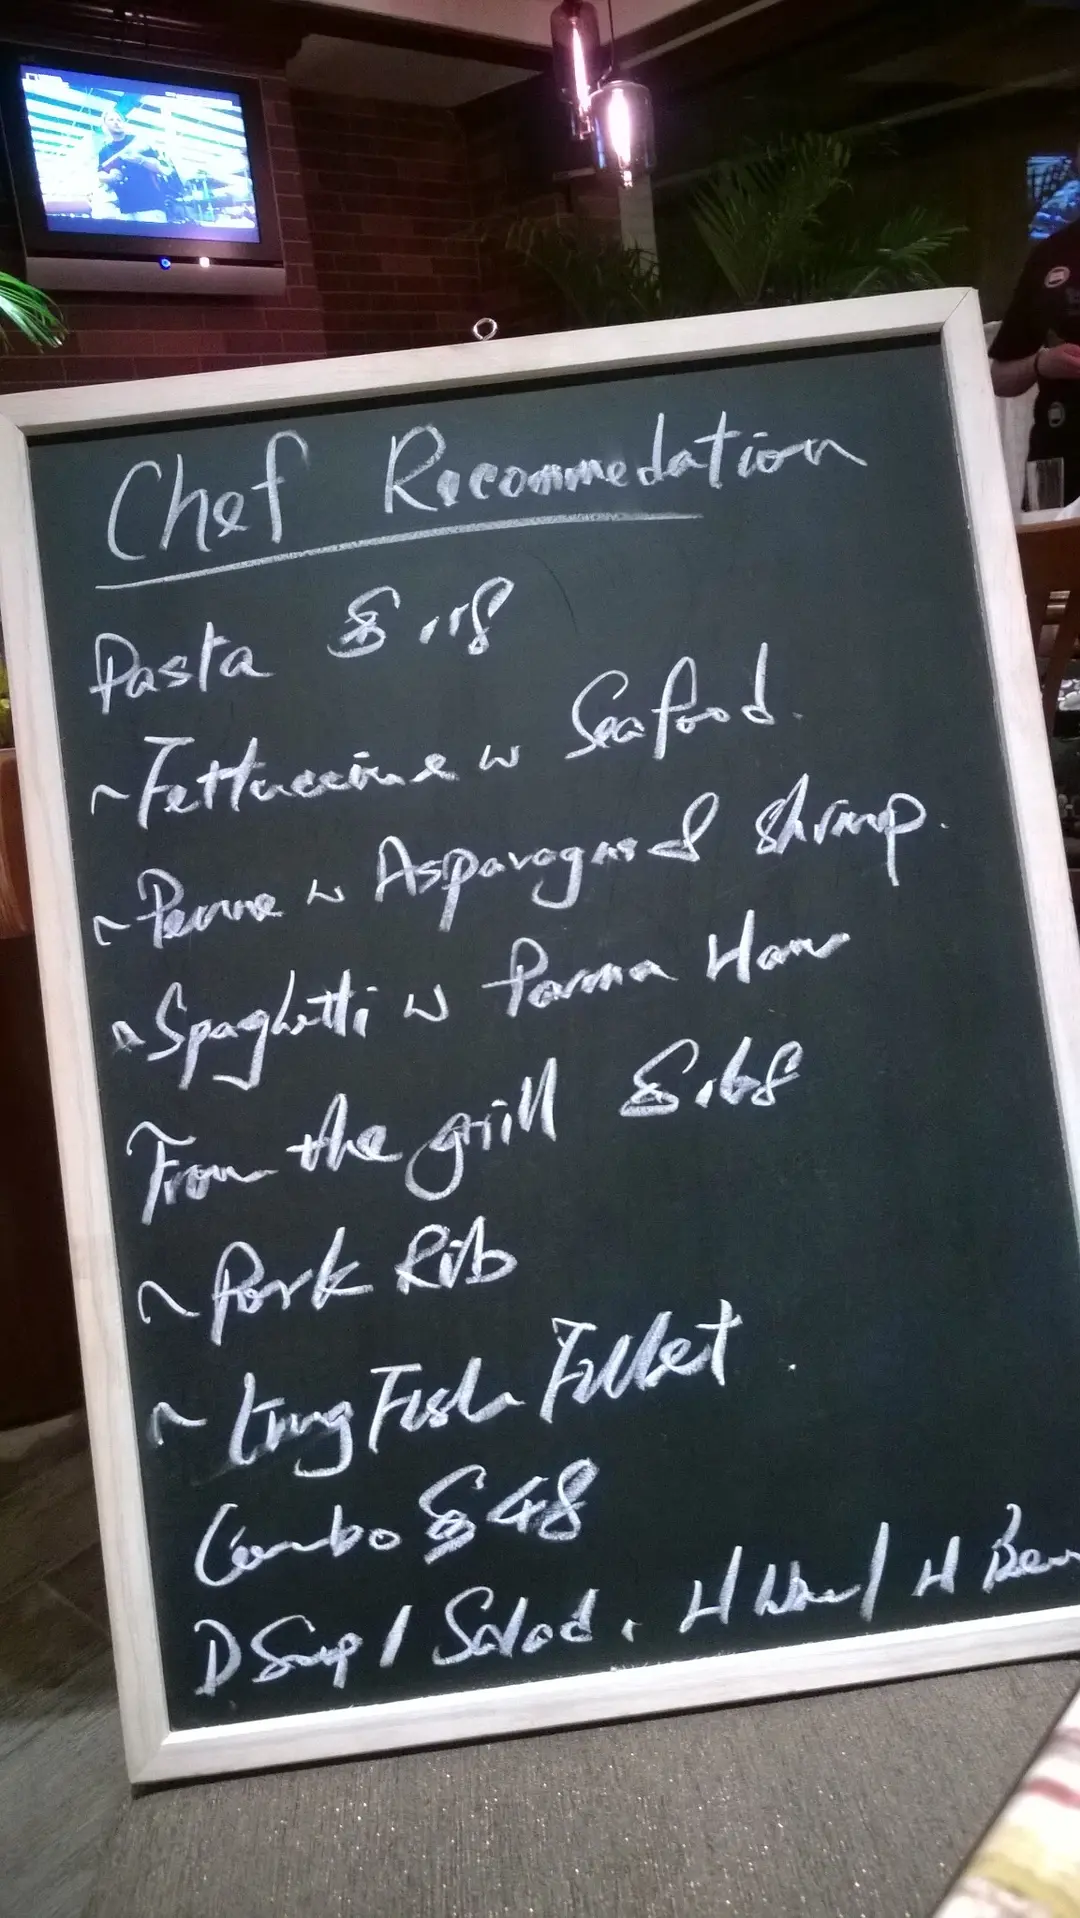 Chef Recommedation
Pasta $ 118
~Fettuccine w Seafood.
~Penne w Asparagus & Shrimp.
~Spaghetti w Parma Ham
From the grill $ 168
~ Pork Rib
~ King Fish Fillet
Combo $ 48
D Soup / Salad, H Wine / H Beer